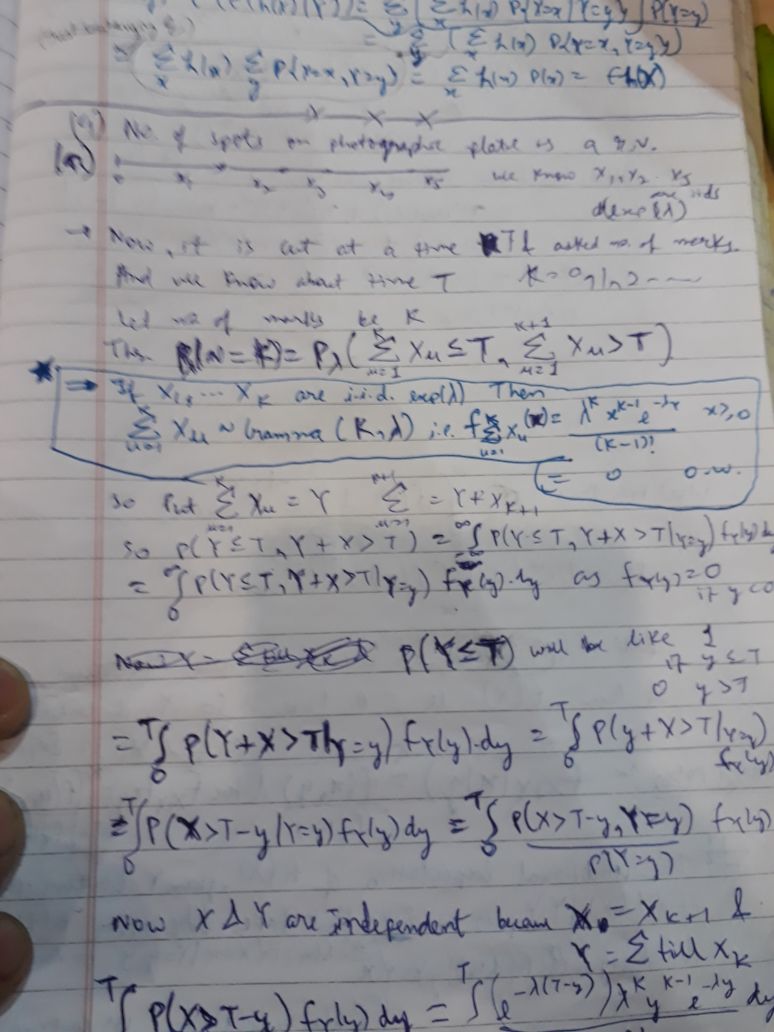 = Σ_y [Σ_x h(x) P{X=x|Y=y}] P(Y=y)
= Σ_y (Σ_x h(x) P{X=x, Y=y})
= Σ_x h(x) Σ_y P{X=x, Y=y} = Σ_x h(x) P(x) = Eh(X)
x x x
No. of spots on photographic plate is a r.v.
0 x₁ x₂ x₃ x₄ x₅ we know x₁, x₂ .. x₅
are iids
exp(λ)
→ Now, it is cut at a time T & asked no. of marks.
And we know about time T K = 0, 1, 2 -----
Let no of marks be K
Then P_λ(N = K) = P_λ(Σ_{u=1}^{K} X_u ≤ T, Σ_{u=1}^{K+1} X_u > T)
* ⇒ If X₁, ... X_K are i.i.d. exp(λ) Then
Σ_{u=1}^{K} X_u ~ Gamma (K, λ) i.e. f_{Σ_{u=1}^{K} X_u}(x) = λ^K x^{K-1} e^{-λx} / (K-1)! x ≥ 0
= 0 o.w.
So Put Σ_{u=1}^{K} X_u = Y Σ_{u=1}^{K+1} = Y + X_{K+1}
So P(Y ≤ T, Y + X > T) = ∫_{-∞}^{∞} P(Y ≤ T, Y + X > T | Y=y) f_Y(y) dy
= ∫_0^∞ P(Y ≤ T, Y+X > T | Y=y) f_Y(y).dy as f_Y(y) = 0
if y < 0
P(Y ≤ T) will be like 1
if y ≤ T
0 y > T
= ∫_0^T P(Y+X > T | Y=y) f_Y(y).dy = ∫_0^T P(y+X > T | Y=y)
f_Y(y)
= ∫_0^T P(X > T-y | Y=y) f_Y(y) dy = ∫_0^T P(X > T-y, Y=y) / P(Y=y) f_Y(y)
Now X & Y are independent because X = X_{K+1} &
Y = Σ till X_K
∫^T P(X > T-y) f_Y(y) dy = ∫^T (e^{-λ(T-y)}) λ^K y^{K-1} e^{-λy} dy